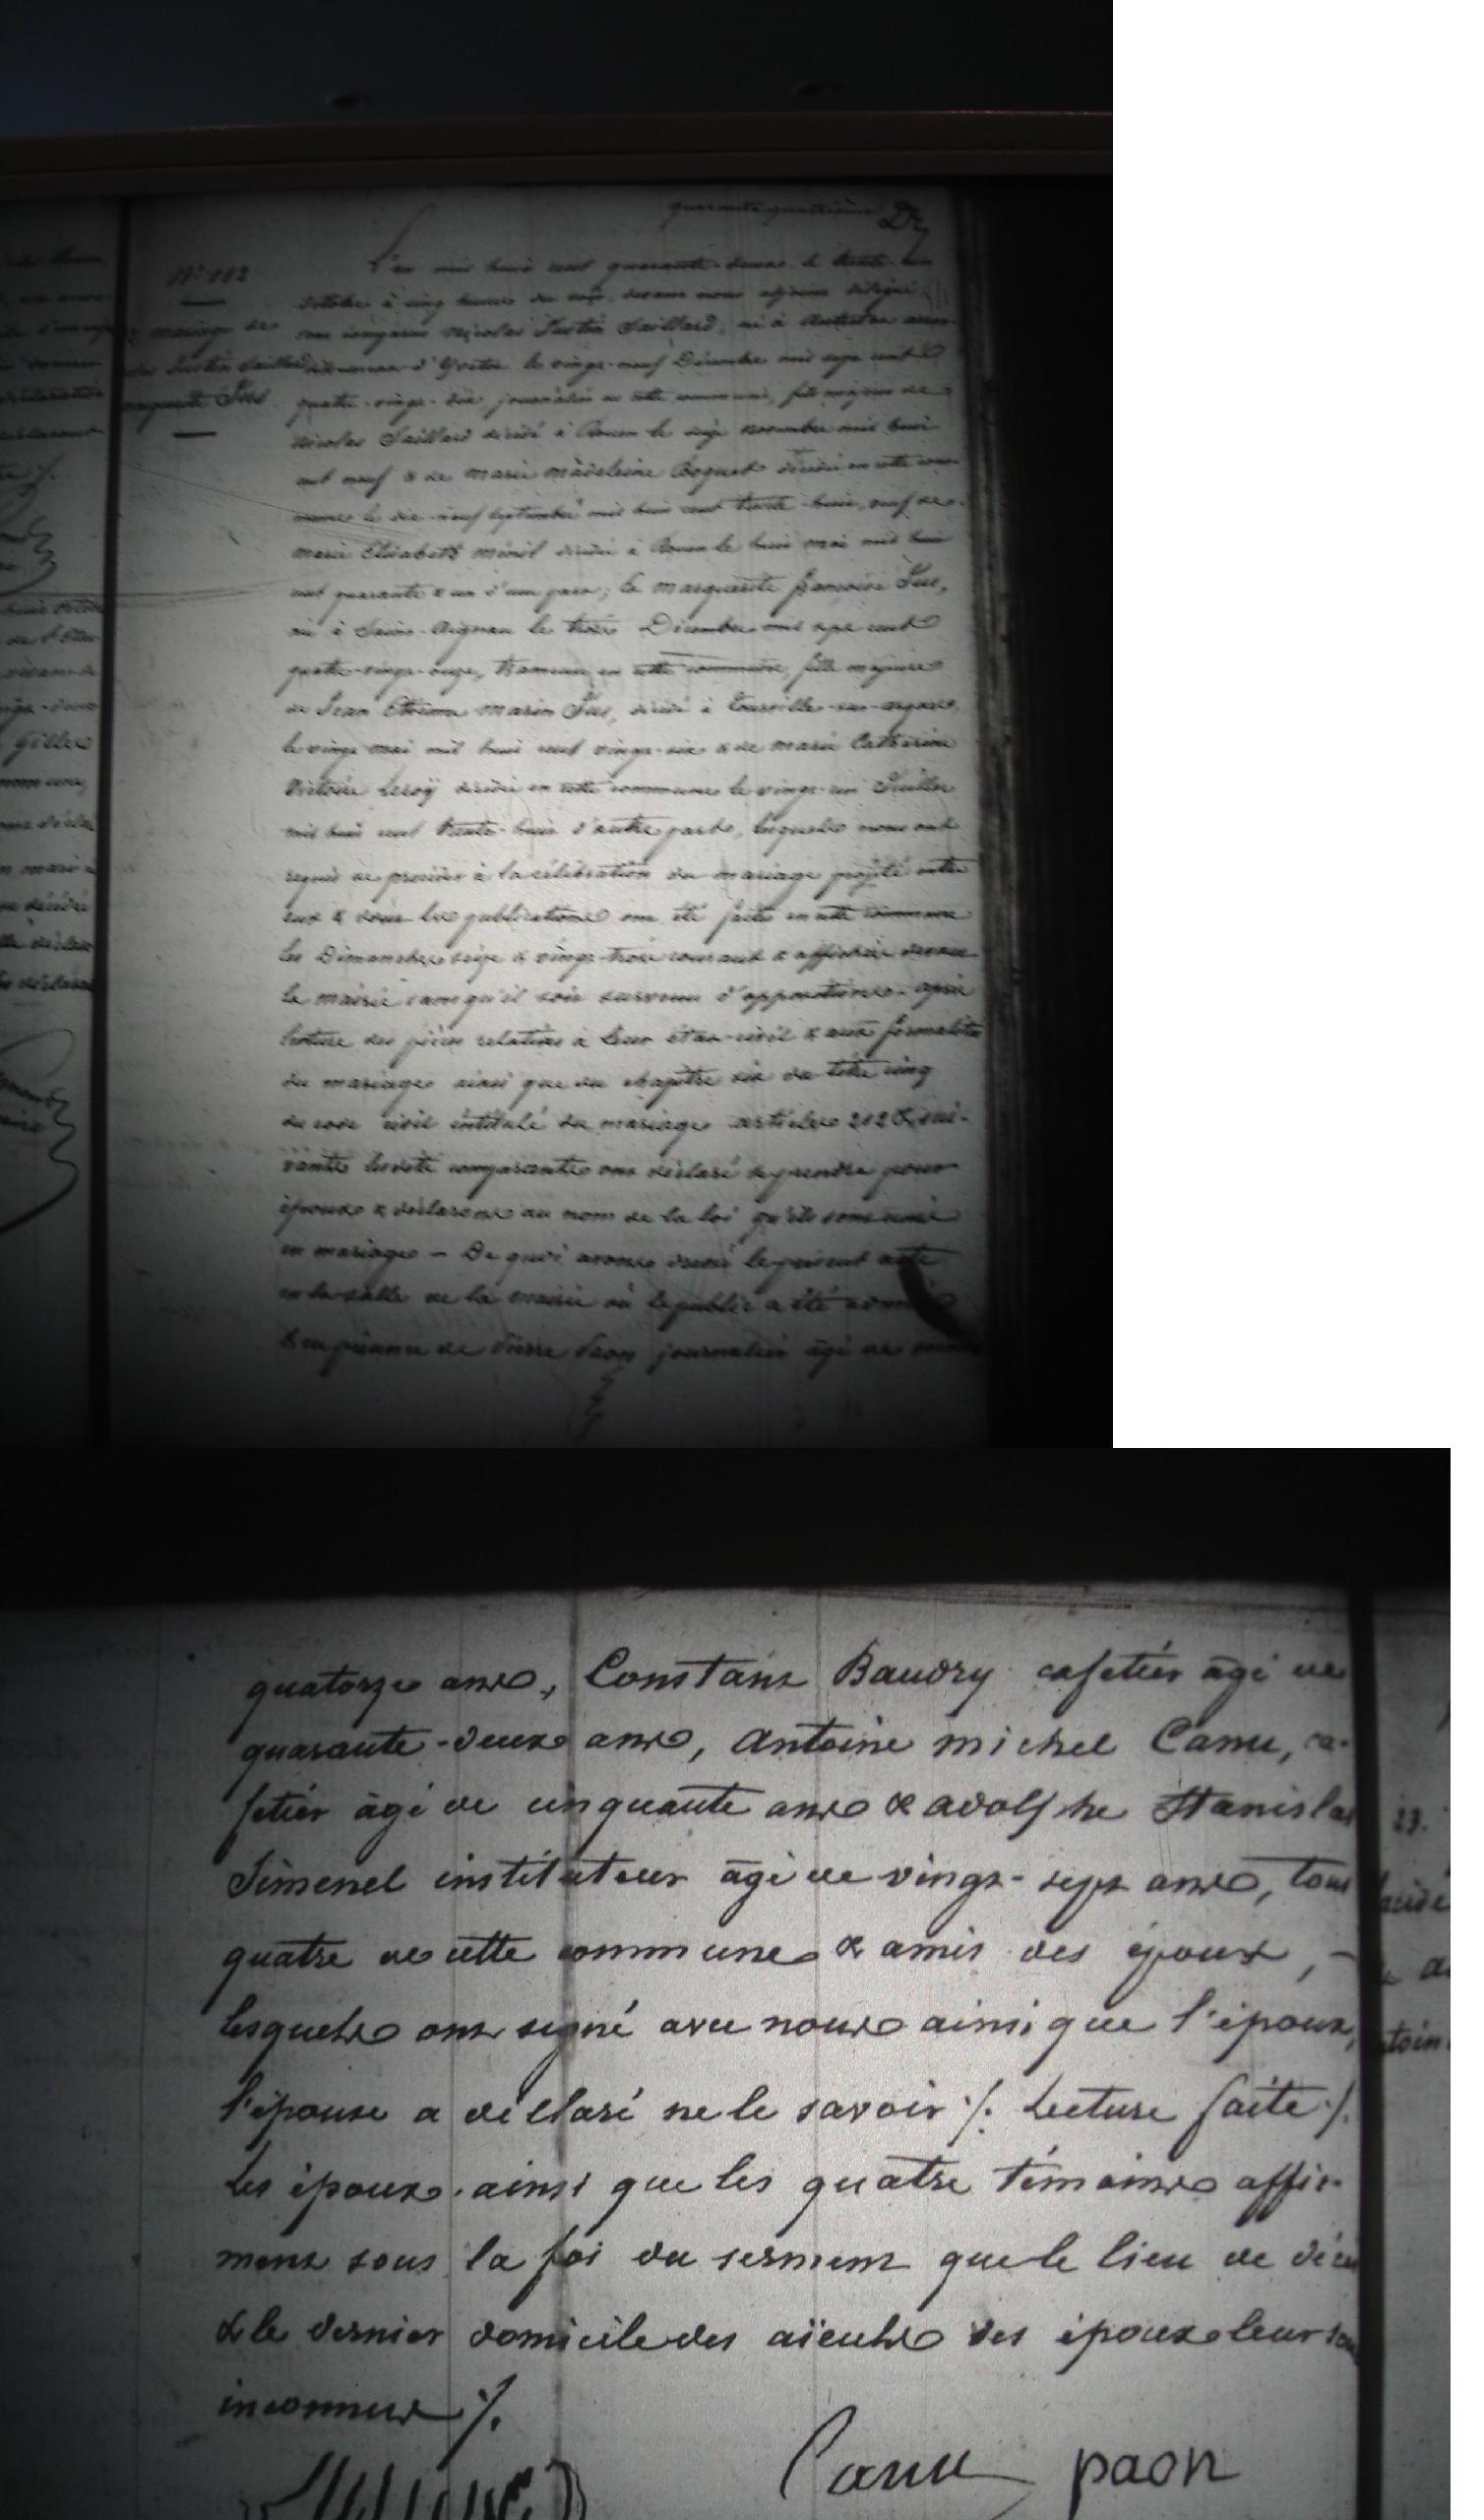 quarante quatrième
N° 113
mariage de
Justin Saillard
marguerite Jus
L'an mil huit cent quarante-deux le trente-un
octobre à cinq heures du soir, devant nous adjoint délégué
sont comparus Nicolas Justin Saillard, né à Autretot arron-
dissement d'Yvetot le vingt-neuf Décembre mil sept cent
quatre-vingt-dix, journalier en cette commune, fils majeur de
Nicolas Saillard décédé à Rouen le seize novembre mil huit
cent neuf & de marie madeleine Boquet décédée en cette com-
mune le dix-neuf septembre mil huit cent trente-huit, veuf de
marie Elisabeth ménil décédée à Rouen le huit mai mil huit
cent quarante & un d'une part; & marguerite françoise Jus,
née à Saint-Aignan le trois Décembre mil sept cent
quatre-vingt-onze, trameuse en cette commune, fille majeure
de Jean Etienne marin Jus, décédé à Tourville-sur-arques,
le vingt mai mil huit cent vingt-six & de marie Catherine
Victoire Leroÿ décédée en cette commune le vingt-un Juillet
mil huit cent trente-huit d'autre part, lesquels nous ont
requis de procéder à la célébration du mariage projeté entre
eux & dont les publications ont été faites en cette commune
les Dimanches seize & vingt-trois courant & affichées devant
la mairie sans qu'il soit survenu d'oppositions. après
lecture des pièces relatives à leur état-civil & aux formalités
du mariage ainsi que du chapitre six du titre cinq
du code civil intitulé du mariage articles 212 & sui-
vants lesdits comparants ont déclaré se prendre pour
époux & déclarons au nom de la loi qu'ils sont unis
en mariage - De quoi avons dressé le présent acte
en la salle de la mairie où le public a été admis
& en présence de Pierre Paon journalier âgé de
quatorze ans, Constant Baudry cafetier âgé de
quarante-deux ans, Antoine michel Canu, ca-
fetier âgé de cinquante ans & adolphe Stanislas
Simenel instituteur âgé de vingt-sept ans, tous
quatre de cette commune & amis des époux, -
lesquels ont signé avec nous ainsi que l'époux,
l'épouse a déclaré ne le savoir ./. Lecture faite ./.
Les époux ainsi que les quatre témoins affir-
ment sous la foi du serment que le lieu de décès
& le dernier domicile des aïeuls des époux leur sont
inconnus ./.
Canu paon